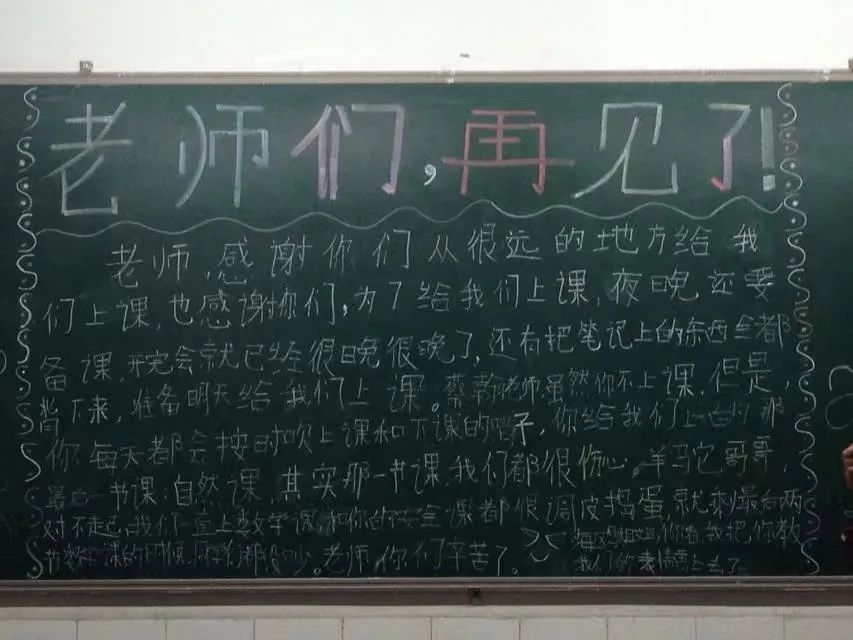 老师们,再见了!
老师,感谢你们从很远的地方给我
们上课,也感谢你们,为了给我们上课,夜晚还要
备课,开完会就已经很晚很晚了,还有把笔记上的东西全都
背下来,准备明天给我们上课。蔡老师,虽然你不上课,但是,
你每天都会按时吹上课和下课的哨子,你给我们上的那
一节课:自然课,其实那一节课,我们都很伤心。羊驼哥哥,
对不起,我们一直上数学课和你的安全课都很调皮捣蛋就剩最后两
节数学课的时候,我们都没吵。老师,你们辛苦了。
我把你教
我们的